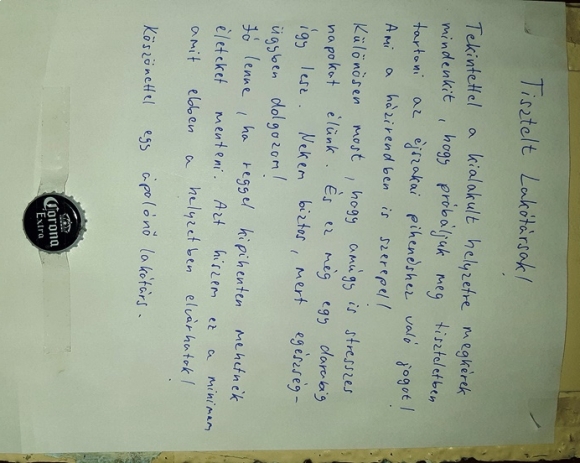 Tisztelt Lakótársak!
Tekintettel a kialakult helyzetre megkérek
mindenkit, hogy próbáljuk meg tiszteletben
tartani az éjszakai pihenéshez való jogot!
Ami a házirendben is szerepel!
Különösen most, hogy amúgy is stresszes
napokat élünk. És ez még egy darabig
így lesz. Nekem biztos, mert egészség-
ügyben dolgozom!
Jó lenne, ha reggel kipihenten mehetnék
életeket menteni. Azt hiszem ez a minimum
amit ebben a helyzetben elvárhatok!
Köszönettel egy ápolónő lakótárs.
Corona
Extra